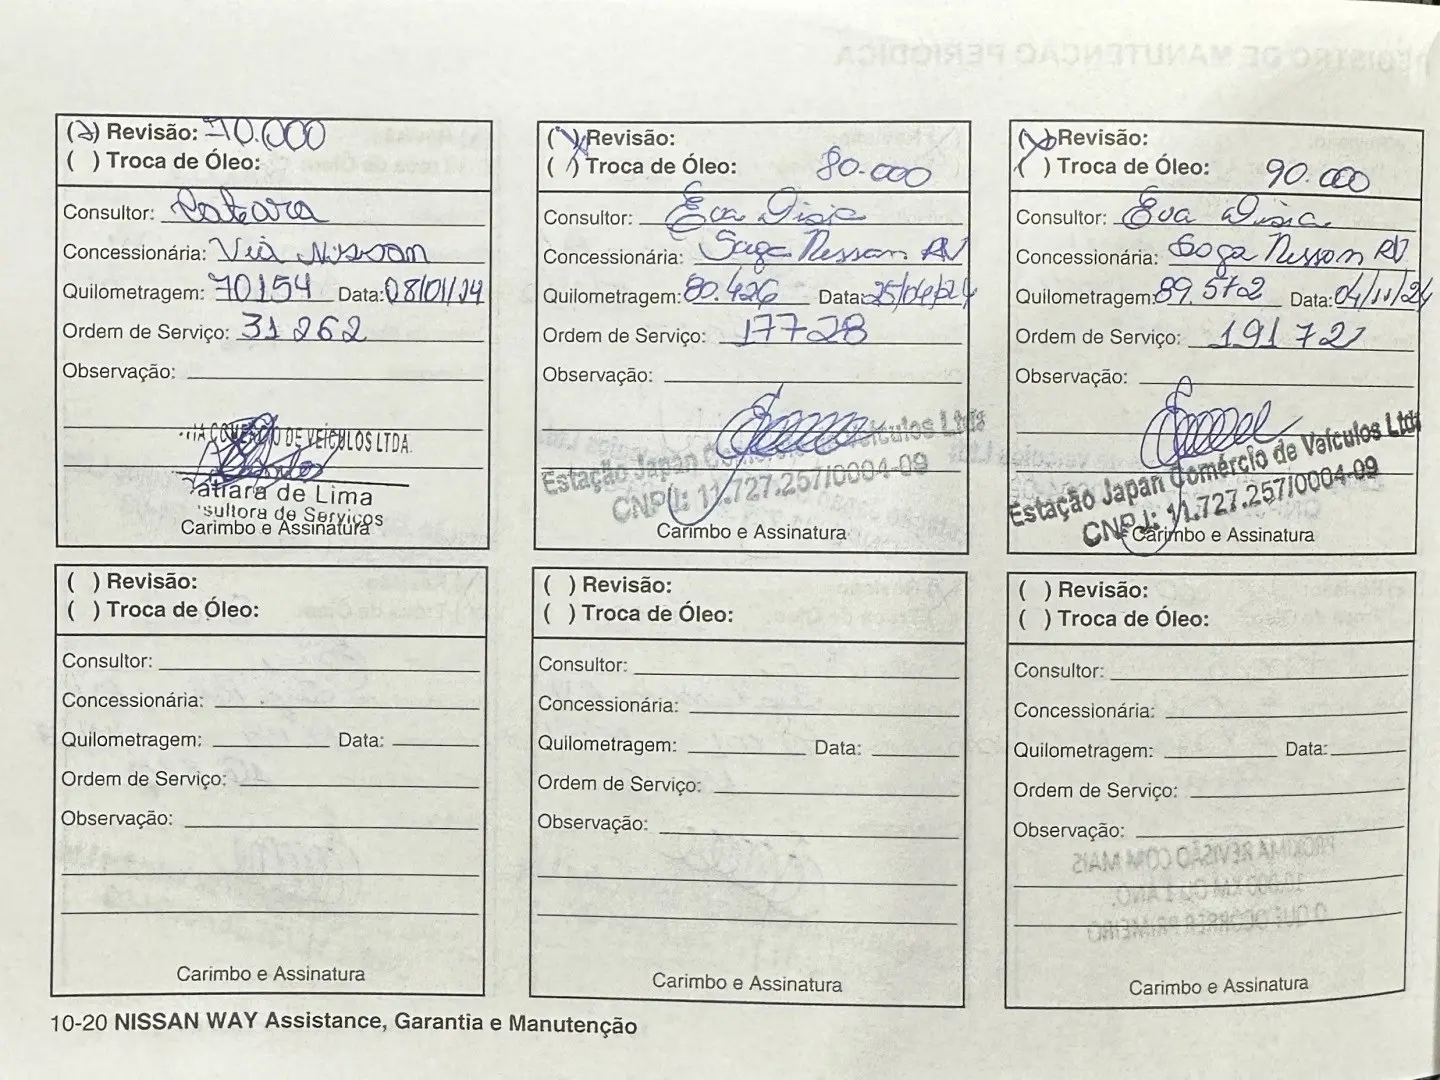 (X) Revisão: 70.000
( ) Troca de Óleo:
Consultor:
Concessionária: Via Nissan
Quilometragem: 70154 Data: 08/01/24
Ordem de Serviço: 31262
Observação:
COMERCIO DE VEÍCULOS LTDA.
de Lima
Serviços
Carimbo e Assinatura
(X) Revisão:
( ) Troca de Óleo: 80.000
Consultor: Eva
Concessionária: Saga Nissan RV
Quilometragem: 80.426 Data: 25/04/24
Ordem de Serviço: 17728
Observação:
Estação Japan Comércio de Veículos Ltda
CNPJ: 11.727.257/0004-09
Carimbo e Assinatura
(X) Revisão:
( ) Troca de Óleo: 90.000
Consultor: Eva
Concessionária: Saga Nissan RV
Quilometragem: 89.572 Data: 04/11/24
Ordem de Serviço: 191721
Observação:
Estação Japan Comércio de Veículos Ltda
CNPJ: 11.727.257/0004-09
Carimbo e Assinatura
( ) Revisão:
( ) Troca de Óleo:
Consultor:
Concessionária:
Quilometragem: Data:
Ordem de Serviço:
Observação:
Carimbo e Assinatura
( ) Revisão:
( ) Troca de Óleo:
Consultor:
Concessionária:
Quilometragem: Data:
Ordem de Serviço:
Observação:
Carimbo e Assinatura
( ) Revisão:
( ) Troca de Óleo:
Consultor:
Concessionária:
Quilometragem: Data:
Ordem de Serviço:
Observação:
Carimbo e Assinatura
10-20 NISSAN WAY Assistance, Garantia e Manutenção